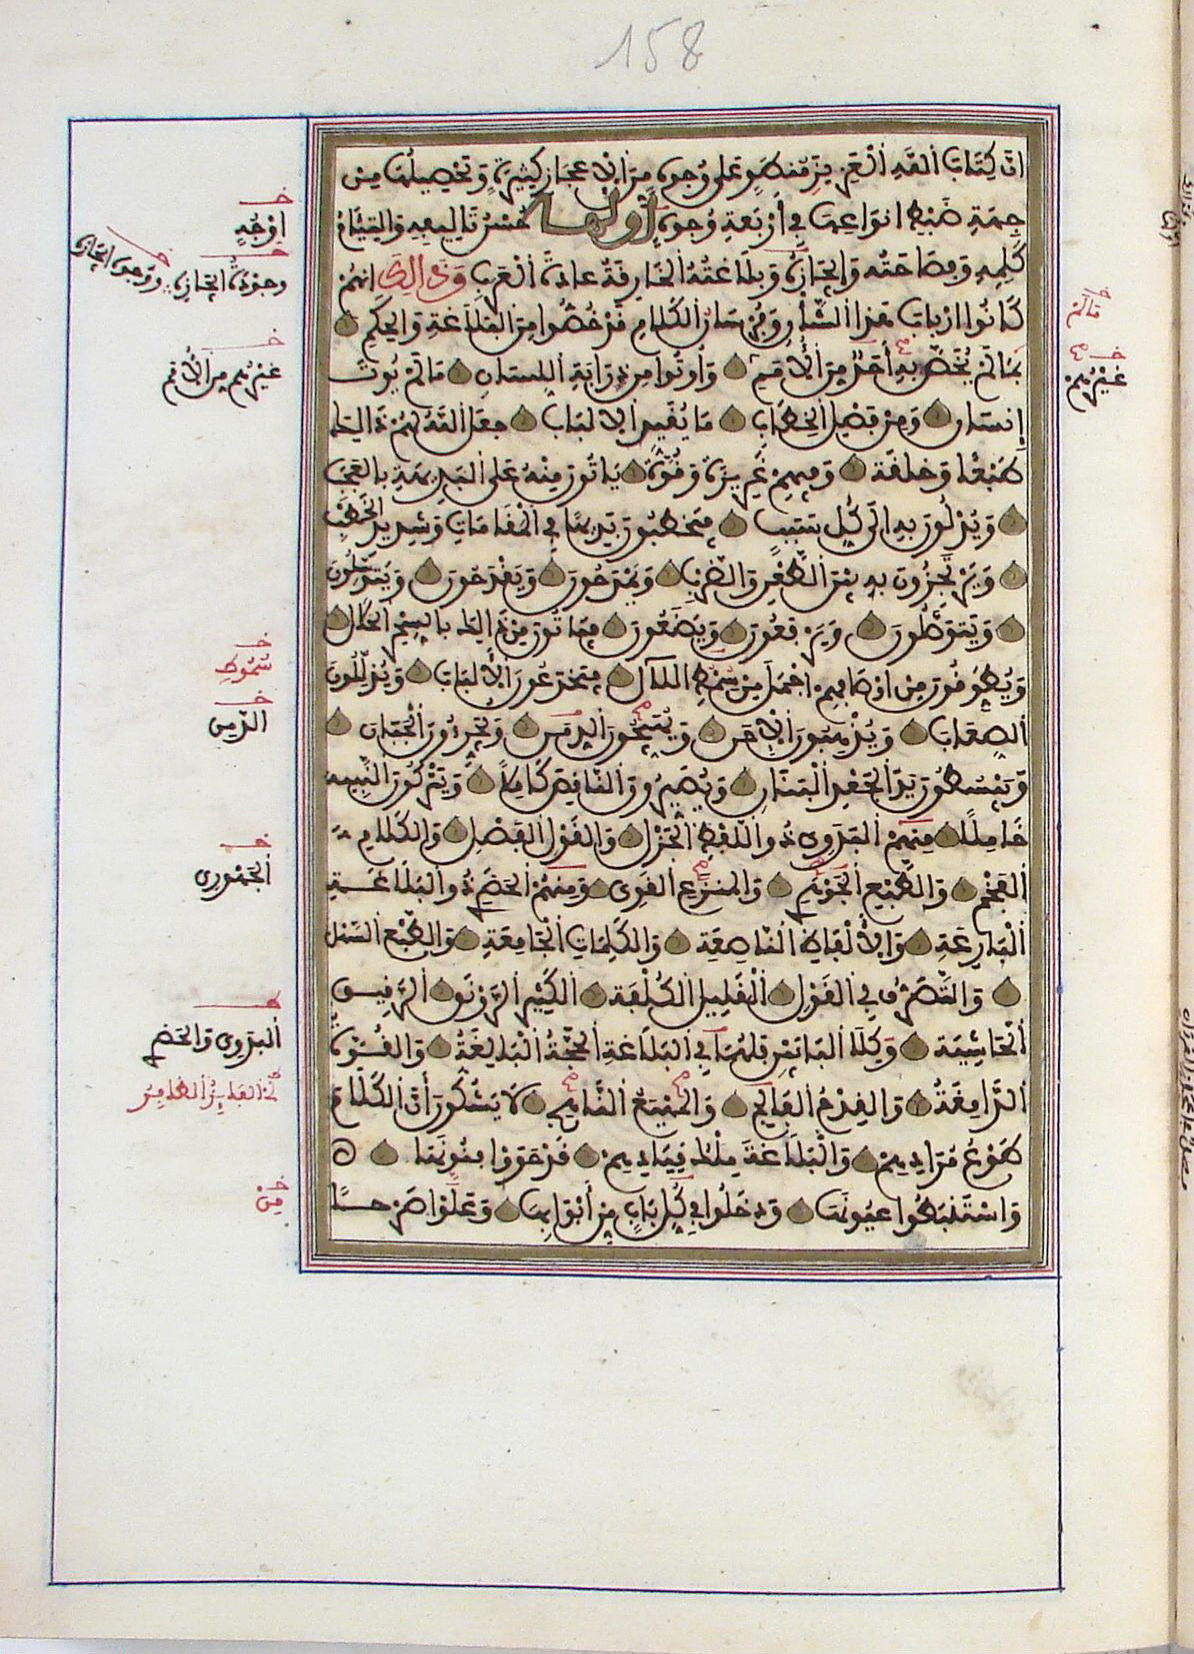 158
أَنَّ كِتَابَ اللَّهِ الْعَزِيزَ مُنْطَوٍ عَلَى وُجُوهٍ مِنَ الْإِعْجَازِ كَثِيرَةٍ وَتَحْصِيلُهَا مِنْ
جِهَةِ ضَبْطِ أَنْوَاعِهَا فِي أَرْبَعَةِ وُجُوهٍ أَوَّلُهَا حُسْنُ تَأْلِيفِهِ وَالْتِئَامُ
كَلِمِهِ وَفَصَاحَتُهُ وَإِيجَازُهُ وَبَلَاغَتُهُ الْخَارِقَةُ عَادَةَ الْعَرَبِ وَذَالِكَ أَنَّهُمْ
كَانُوا أَرْبَابَ هَذَا الشَّأْنِ وَفُرْسَانَ الْكَلَامِ قَدْ خُصُّوا مِنَ الْبَلَاغَةِ وَالْحِكَمِ
بِمَا لَمْ يُخَصَّ بِهِ أَحَدٌ مِنَ الْأُمَمِ وَأُوتُوا مِنْ ذَرَابَةِ اللِّسَانِ مَا لَمْ يُوتَ
إِنْسَانٌ وَمِنْ فَصْلِ الْخِطَابِ مَا يُقَيِّدُ الْأَلْبَابَ جَعَلَ اللَّهُ لَهُمْ ذَالِكَ
طَبْعًا وَخِلْقَةً وَفِيهِمْ غَرِيزَةً وَقُوَّةً يَاتُونَ مِنْهُ عَلَى الْبَدِيهَةِ بِالْعَجَبِ
وَيُدْلُونَ بِهِ إِلَى كُلِّ سَبَبٍ فَيَخْطُبُونَ بَدِيهًا فِي الْمَقَامَاتِ وَشَدِيدِ الْخَطْبِ
وَيَرْتَجِزُونَ بِهِ بَيْنَ الطَّعْنِ وَالضَّرْبِ وَيَمْدَحُونَ وَيَقْدَحُونَ وَيَتَوَسَّلُونَ
وَيَتَوَصَّلُونَ وَيَرْفَعُونَ وَيَضَعُونَ فَيَاتُونَ مِنْ ذَالِكَ بِالسِّحْرِ الْحَلَالِ
وَيُطَوِّقُونَ مِنْ أَوْصَافِهِمْ أَجْمَلَ مِنْ سِمْطِ اللَّآلِ فَيَخْدَعُونَ الْأَلْبَابَ وَيُذَلِّلُونَ
الصِّعَابَ وَيُذْهِبُونَ الْإِحَنَ وَيُهَيِّجُونَ الدِّمَنَ وَيُجَرِّئُونَ الْجَبَانَ
وَيَبْسُطُونَ يَدَ الْجَعْدِ الْبَنَانِ وَيُصَيِّرُونَ النَّاقِصَ كَامِلًا وَيَتْرُكُونَ النَّبِيهَ
خَامِلًا مِنْهُمُ الْبَدَوِيُّ ذُو اللَّفْظِ الْجَزْلِ وَالْقَوْلِ الْفَصْلِ وَالْكَلَامِ
الْفَخْمِ وَالطَّبْعِ الْجَوْهَرِيِّ وَالْمَنْزَعِ الْقَوِيِّ وَمِنْهُمُ الْحَضَرِيُّ ذُو الْبَلَاغَةِ
الْبَارِعَةِ وَالْأَلْفَاظِ النَّاصِعَةِ وَالْكَلِمَاتِ الْجَامِعَةِ وَالطَّبْعِ السَّهْلِ
وَالتَّصَرُّفِ فِي الْقَوْلِ الْقَلِيلِ الْكُلْفَةِ الْكَثِيرِ الرَّوْنَقِ الرَّقِيقِ
الْحَاشِيَةِ وَكِلَا الْبَابَيْنِ فَلَهُمَا فِي الْبَلَاغَةِ الْحُجَّةُ الْبَالِغَةُ وَالْقُوَّةُ
الدَّامِغَةُ وَالْقِدْحُ الْفَالِجُ وَالْمَهْيَعُ النَّاهِجُ لَا يَشُكُّونَ أَنَّ الْكَلَامَ
طَوْعُ مُرَادِهِمْ وَالْبَلَاغَةَ مِلْكُ قِيَادِهِمْ قَدْ حَوَوْا فُنُونَهَا
وَاسْتَنْبَطُوا عُيُونَهَا وَدَخَلُوا فِي كُلِّ بَابٍ مِنْ أَبْوَابِهَا وَعَلَوْا صَرْحًا
أَوْجُهٍ
وجوه إيجازه
غيرهم من الأمم
غيرهم
سموط
الدمن
الجهوري
البدوي والحضري
من